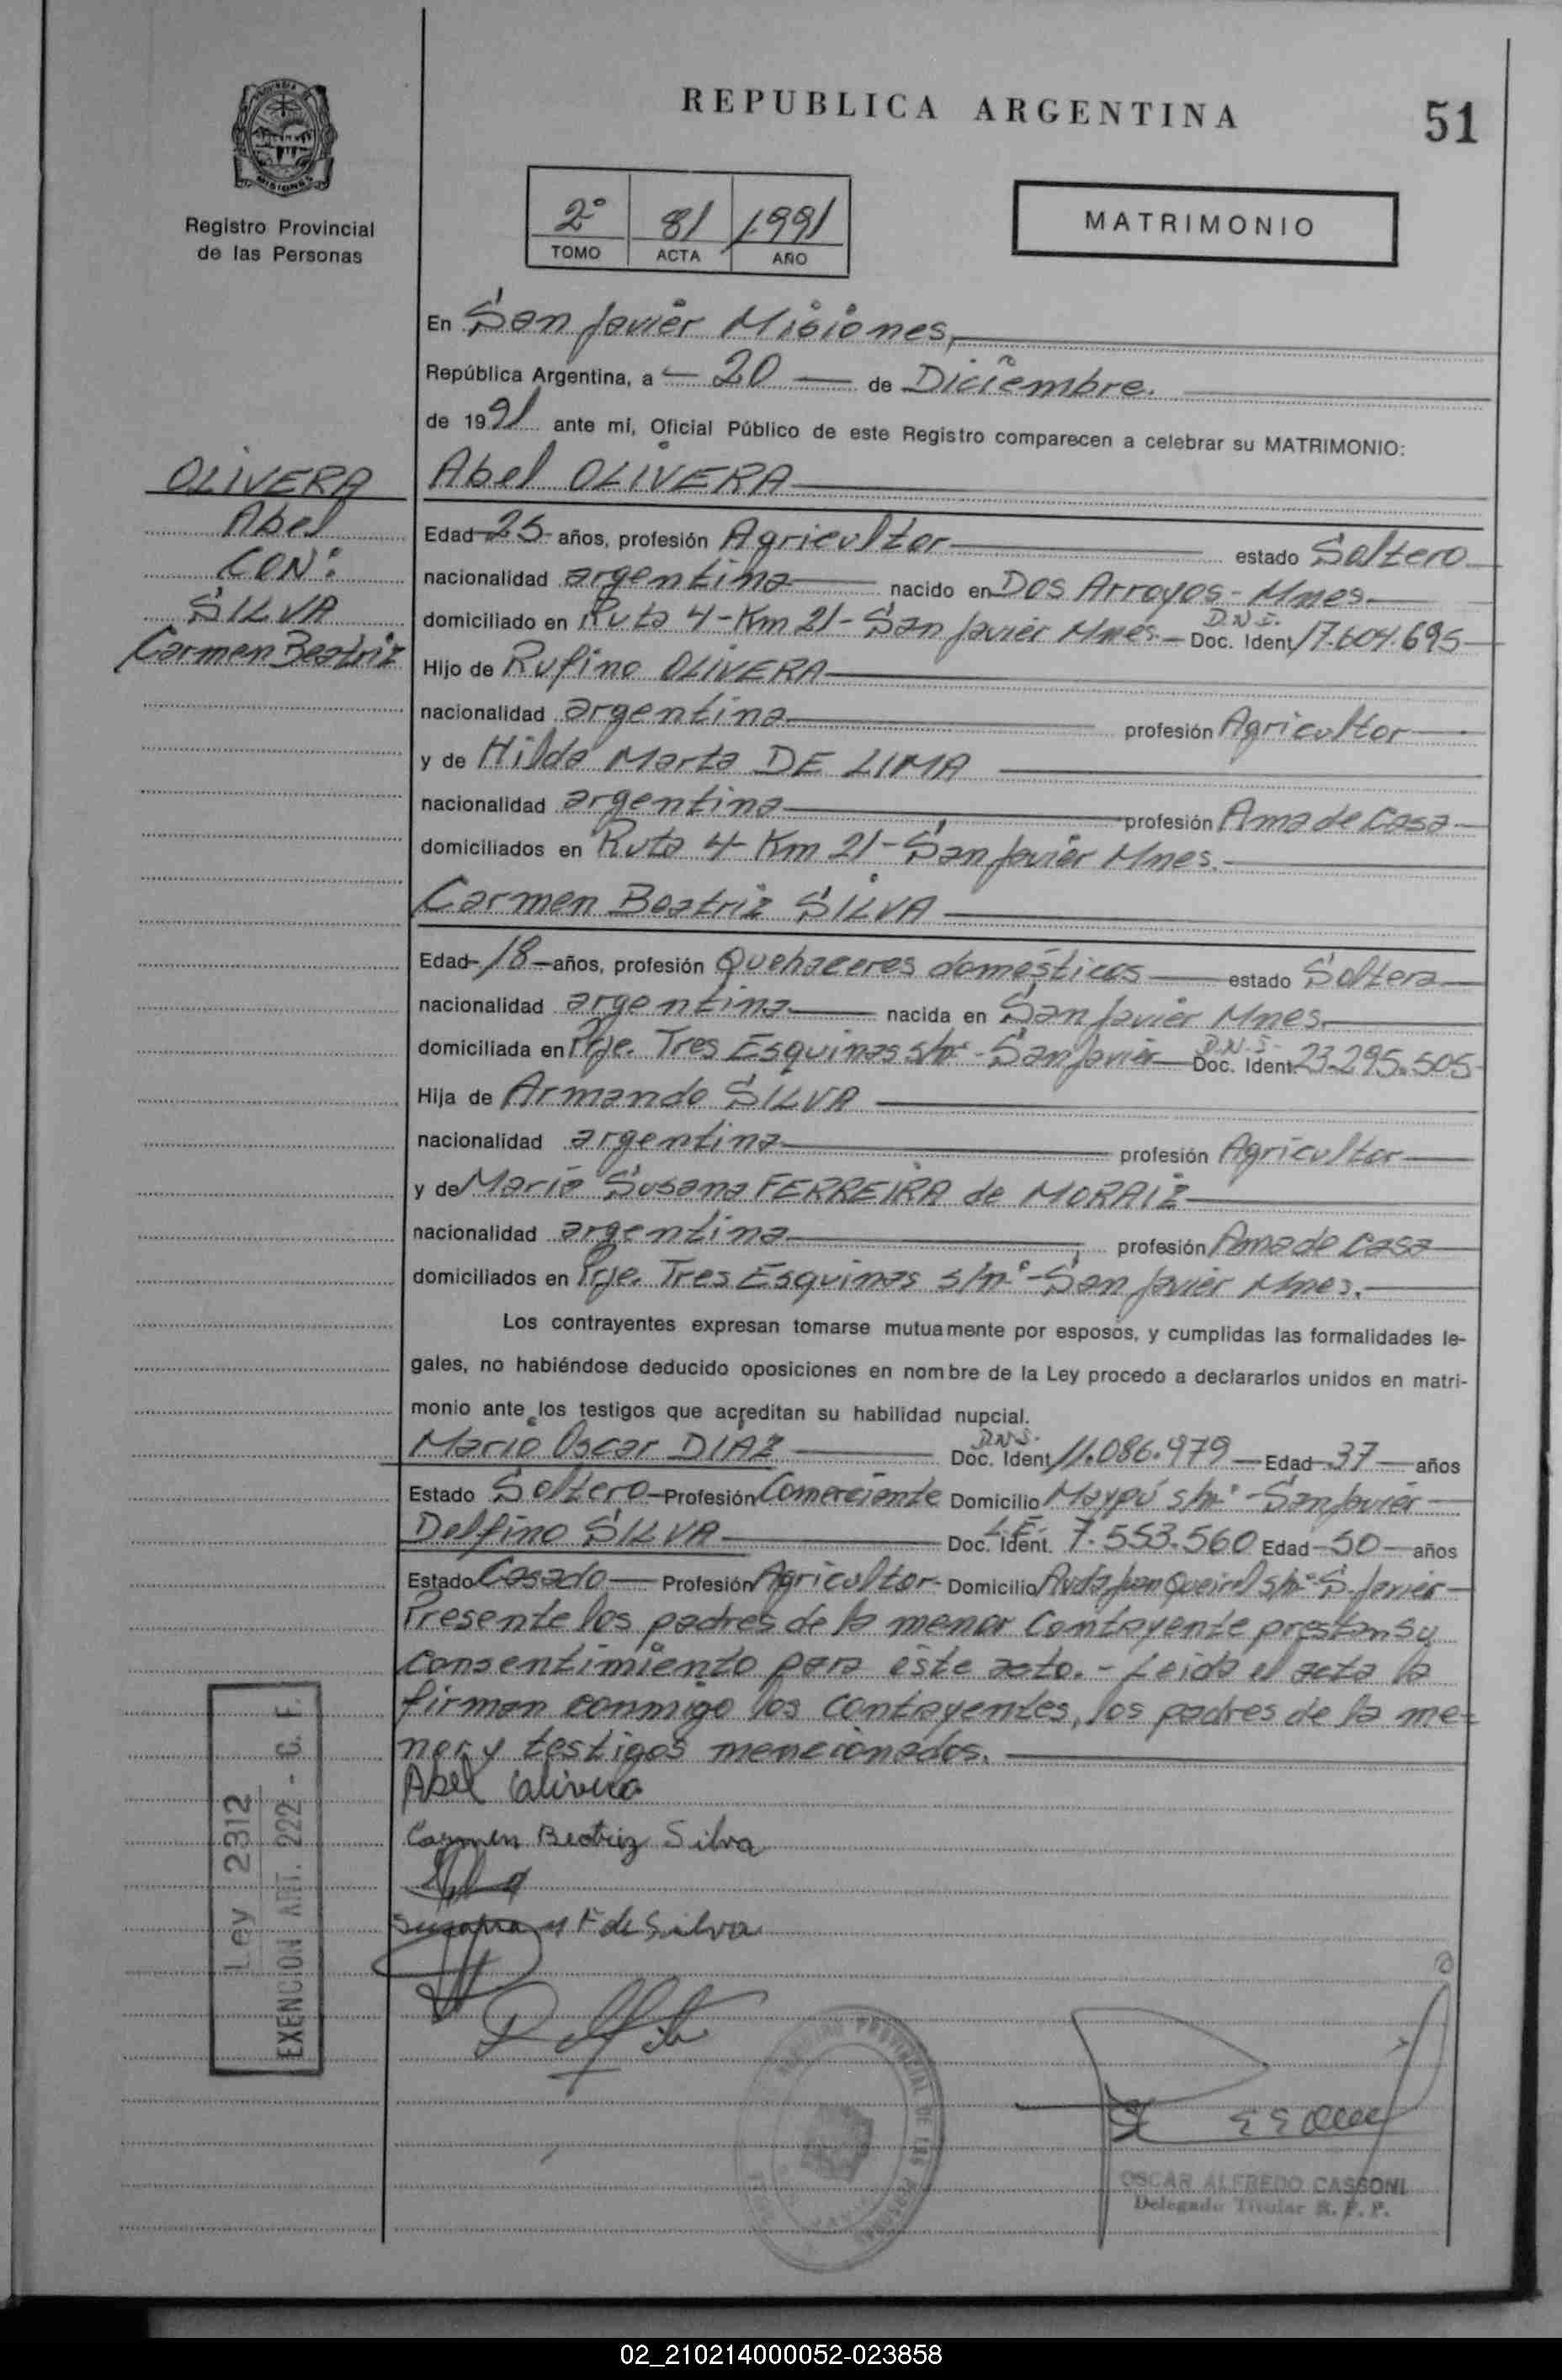 REPUBLICA ARGENTINA
51
MISIONES
Registro Provincial
de las Personas
2° 81 1991
TOMO ACTA AÑO
MATRIMONIO
En San Javier Misiones,
República Argentina, a 20 de Diciembre.
de 1991 ante mí, Oficial Público de este Registro comparecen a celebrar su MATRIMONIO:
OLIVERA
Abel
CON:
SILVA
Carmen Beatriz
Abel OLIVERA
Edad 25 años, profesión Agricultor estado Soltero
nacionalidad argentina nacido en Dos Arroyos - Mnes.
domiciliado en Ruta 4 - Km 21 - San Javier Mnes. - D.N.I. Doc. Ident 17.604.695
Hijo de Rufino OLIVERA
nacionalidad argentina profesión Agricultor
y de Hilda Marta DE LIMA
nacionalidad argentina profesión Ama de Casa
domiciliados en Ruta 4 - Km 21 - San Javier Mnes.
Carmen Beatriz SILVA
Edad 18 años, profesión Quehaceres domésticos estado Soltera
nacionalidad argentina nacida en San Javier Mnes.
domiciliada en Pje. Tres Esquinas s/n° - San Javier D.N.I. Doc. Ident 23.295.505
Hija de Armando SILVA
nacionalidad argentina profesión Agricultor
y de María Susana FERREIRA de MORAIZ
nacionalidad argentina profesión Ama de casa
domiciliados en Pje. Tres Esquinas s/n° - San Javier Mnes.
Los contrayentes expresan tomarse mutuamente por esposos, y cumplidas las formalidades le-
gales, no habiéndose deducido oposiciones en nombre de la Ley procedo a declararlos unidos en matri-
monio ante los testigos que acreditan su habilidad nupcial.
Mario Oscar DIAZ D.N.I. Doc. Ident 11.086.979 Edad 37 años
Estado Soltero Profesión Comerciante Domicilio Maypú s/n° - San Javier
Delfino SILVA L.E. Doc. Ident. 7.553.560 Edad 50 años
Estado Casado Profesión Agricultor - Domicilio Avda Juan Queirel s/n° S. Javier
Presente los padres de la menor Contrayente prestan su
consentimiento para éste acto. - Leida el acta la
firman conmigo los contrayentes, los padres de la me-
nor y testigos mencionados.
Abel olivera
Carmen Beatriz Silva
Susana M F de Silva
Ley 2312
EXENCION ART. 222 - C. F.
REGISTRO PROVINCIAL DE LAS PERSONAS
OSCAR ALFREDO CASSONI
Delegado Titular R. P. P.
02_210214000052-023858